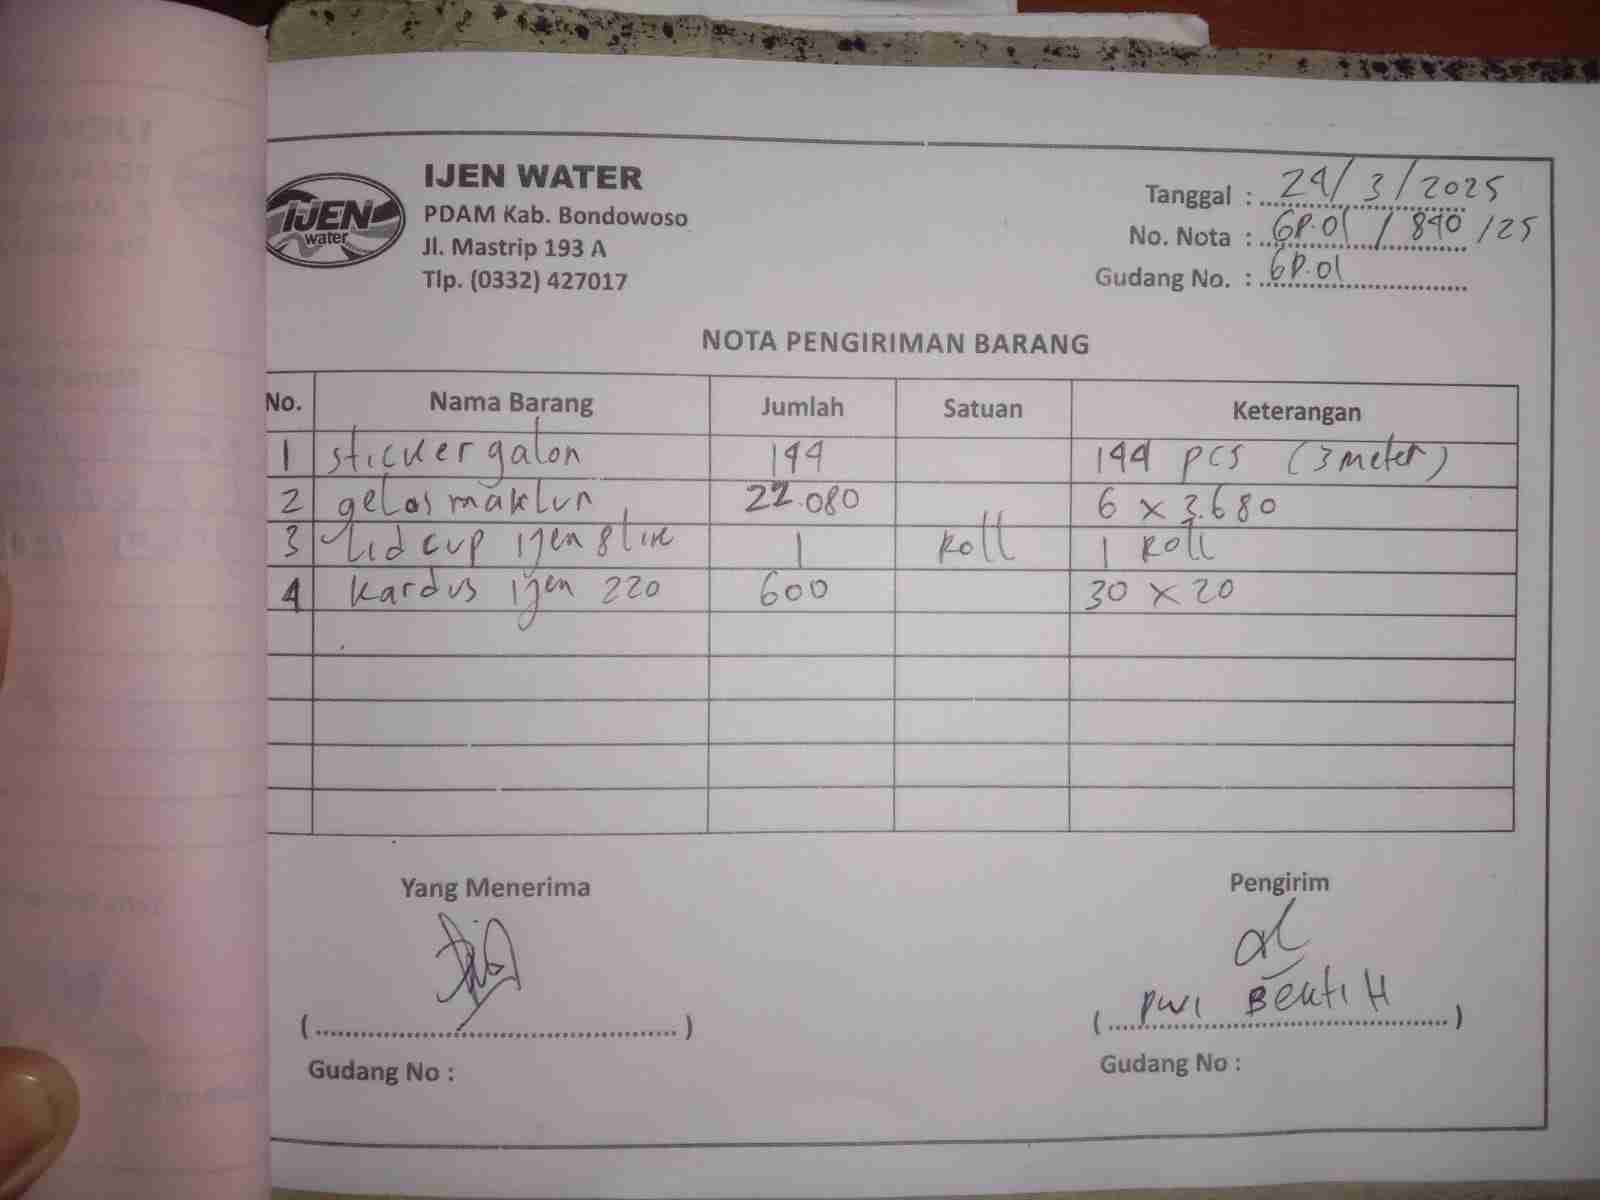 IJEN WATER
PDAM Kab. Bondowoso
Jl. Mastrip 193 A
Tlp. (0332) 427017
IJEN
water
Tanggal : 24/3/2025
No. Nota : GP.01 / 840 /25
Gudang No. : GP.01
NOTA PENGIRIMAN BARANG
No. Nama Barang Jumlah Satuan Keterangan
1 sticker galon 144 144 pcs (3 meter)
2 gelas maklun 22.080 6 x 3.680
3 Lid cup ijen 1 Roll 1 Roll
4 kardus ijen 220 600 30 x 20
Yang Menerima Pengirim
(....................) ( Dwi Bekti H )
Gudang No : Gudang No :